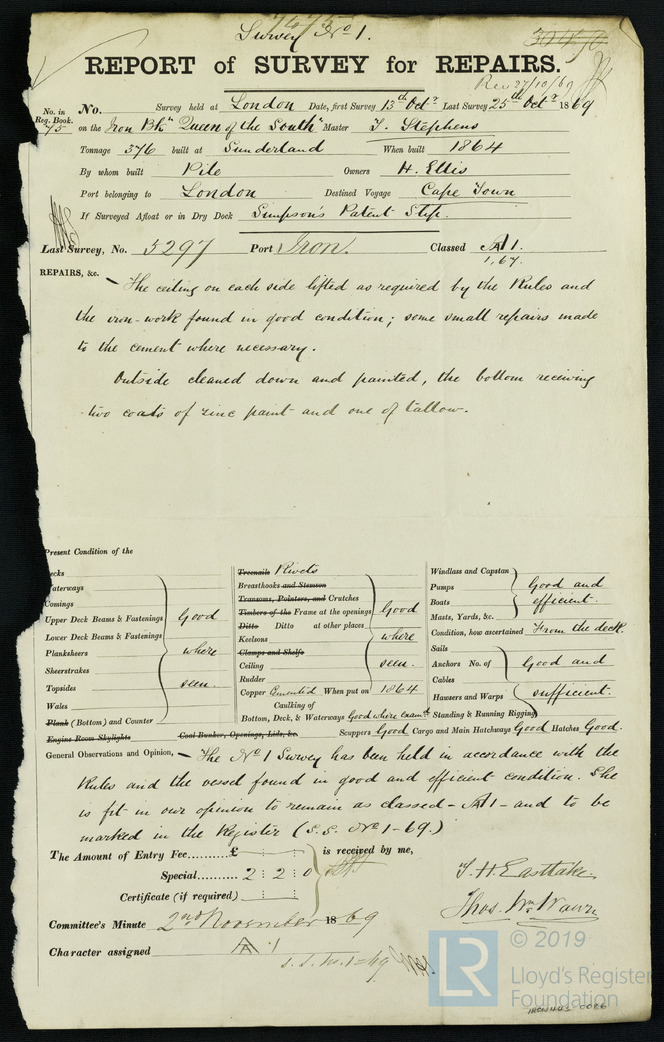 Survey No 1.
REPORT of SURVEY for REPAIRS.
Rec 27/10/69
No. in Reg. Book. 75
No. Survey held at London Date, first Survey 13th Octr Last Survey 25th Octr 1869
on the Iron Bkn "Queen of the South" Master T. Stephens
Tonnage 376 built at Sunderland When built 1864
By whom built Pile Owners H. Ellis
Port belonging to London Destined Voyage Cape Town
If Surveyed Afloat or in Dry Dock Simpson's Patent Slip.
Last Survey, No. 3297 Port Iron. Classed A1.
1,67.
REPAIRS, &c. The ceiling on each side lifted as required by the Rules and
the iron-work found in good condition; some small repairs made
to the cement where necessary.
Outside cleaned down and painted, the bottom receiving
two coats of zinc paint and one of tallow.
Present Condition of the
ecks
aterways
Comings
Upper Deck Beams & Fastenings
Lower Deck Beams & Fastenings
Planksheers
Sheerstrakes
Topsides
Wales
Plank (Bottom) and Counter
Good
where
seen.
Engine Room Skylights
Treenails Rivets
Breasthooks and Stemson
Transoms, Pointers, and Crutches
Timbers of the Frame at the openings
Ditto Ditto at other places
Keelsons
Clamps and Shelfs
Ceiling
Rudder
Good
where
seen.
Copper Cemented When put on 1864
Caulking of
Bottom, Deck, & Waterways Good where examd
Coal Bunker, Openings, Lids, &c.
Windlass and Capstan
Pumps
Boats
Masts, Yards, &c.
Good and
efficient.
Condition, how ascertained From the deck.
Sails
Anchors No. of
Cables
Hawsers and Warps
Standing & Running Rigging
Good and
sufficient.
Scuppers Good Cargo and Main Hatchways Good Hatches Good.
General Observations and Opinion, The No 1 Survey has been held in accordance with the
Rules and the vessel found in good and efficient condition. She
is fit in our opinion to remain as classed - A1 - and to be
marked in the Register (S.S. No 1-69.)
The Amount of Entry Fee..........£ : : is received by me,
Special......... 2 : 2 : 0
Certificate (if required) : :
T. H. Eastlake.
Thos. Wm Wawn
Committee's Minute 2nd November 1869
Character assigned A 1
S.S. No. 1-69
© 2019
LR
Lloyd's Register
Foundation
IRON443 0026